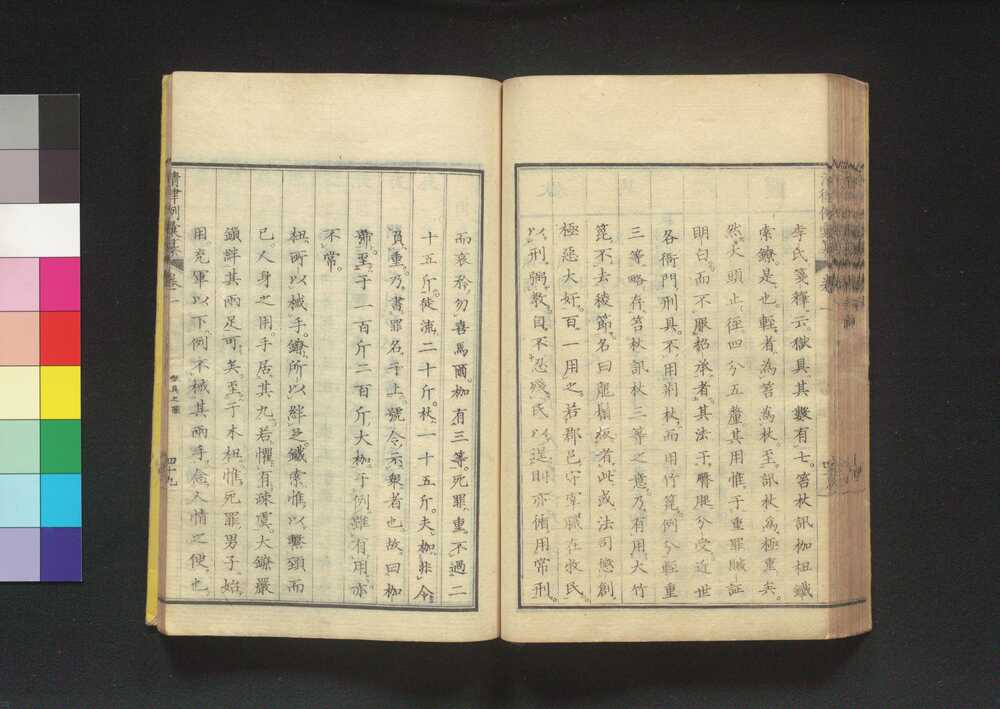 李氏箋釋云獄具其數有七。笞杖訊枷杻鐵
索鐐是也輕者為笞為杖至訊杖為極重矣。
然大頭止徑四分五釐其用惟于重罪贓証
明白而不服招承者。其法于臀腿分受近世
各衙門刑具。不用荆杖。而用竹箆。例分輕重
三等略存笞杖訊杖三等之意乃有用大竹
箆不去稜節。名曰龍鬚板者。此或法司懲創
極惡大奸。百一用之。若郡邑守宰職在牧民。
以刑弼教。自不忍殘民以逞則亦猶用常刑。
而哀矜勿喜焉爾。枷有三等。死罪重不過二
十五斤。徒流二十斤。杖一十五斤。夫枷非令
負重乃書罪名于上號令示衆者也故曰枷
號。至于一百斤二百斤大枷。于例雖有用亦
不常。
杻所以械手。鐐所以絆足。鐵索惟以繫頸而
已。人身之用。手居其九。若懼有疎虞。大鐐嚴
鎖絆其兩足可矣。至于木杻惟死罪男子始
用。充軍以下。例不械其兩手念人情之便也
清律例彙纂
卷一
獄具之圖
四十九